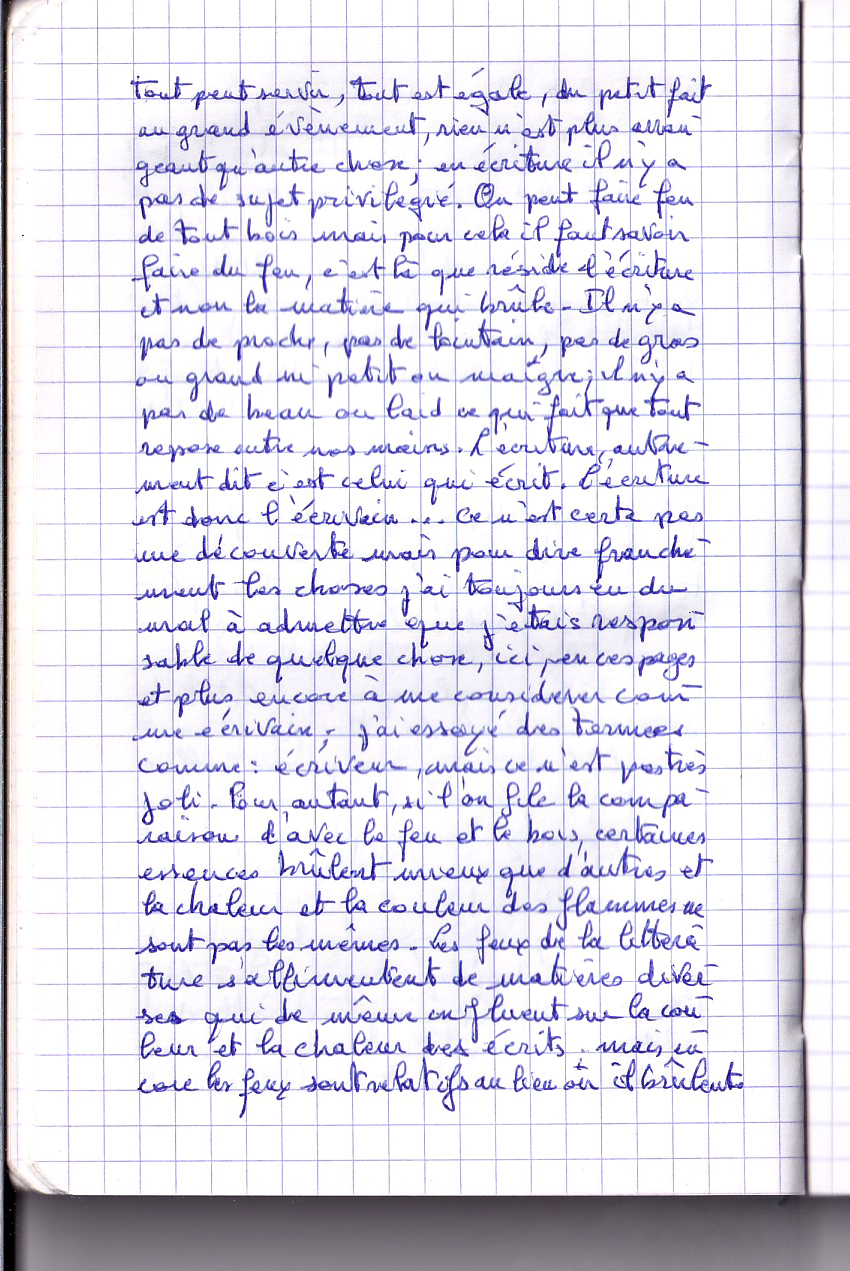 tout peut servir, tout est égale, du petit fait
au grand évènement, rien n'est plus arran-
geant qu'autre chose; en écriture il n'y a
pas de sujet privilégié. On peut faire feu
de tout bois mais pour cela il faut savoir
faire du feu, c'est là que réside l'écriture
et non la matière qui brûle - Il n'y a
pas de proche, pas de lointain, pas de gros
ou grand ni petit ou maigre; il n'y a
pas de beau ou laid ce qui fait que tout
repose entre nos mains. L'écriture, autre-
ment dit c'est celui qui écrit. l'écriture
est donc l'écrivain... Ce n'est certe pas
une découverte mais pour dire franche-
ment les choses j'ai toujours eu du
mal à admettre que j'étais respon-
sable de quelque chose, ici, en ces pages
et plus encore à me considérer com-
me écrivain; j'ai essayé des termes
comme: écriveur, mais ce n'est pas très
joli. Pour autant, si l'on file la compa-
raison d'avec le feu et le bois, certaines
essences brûlent mieux que d'autres et
la chaleur et la couleur des flammes ne
sont pas les mêmes - les feux de la littera-
ture s'allimentent de matières diver-
ses qui de même influent sur la cou-
leur et la chaleur des écrits. mais en-
core les feux sont relatifs au lieu où il brûlent.